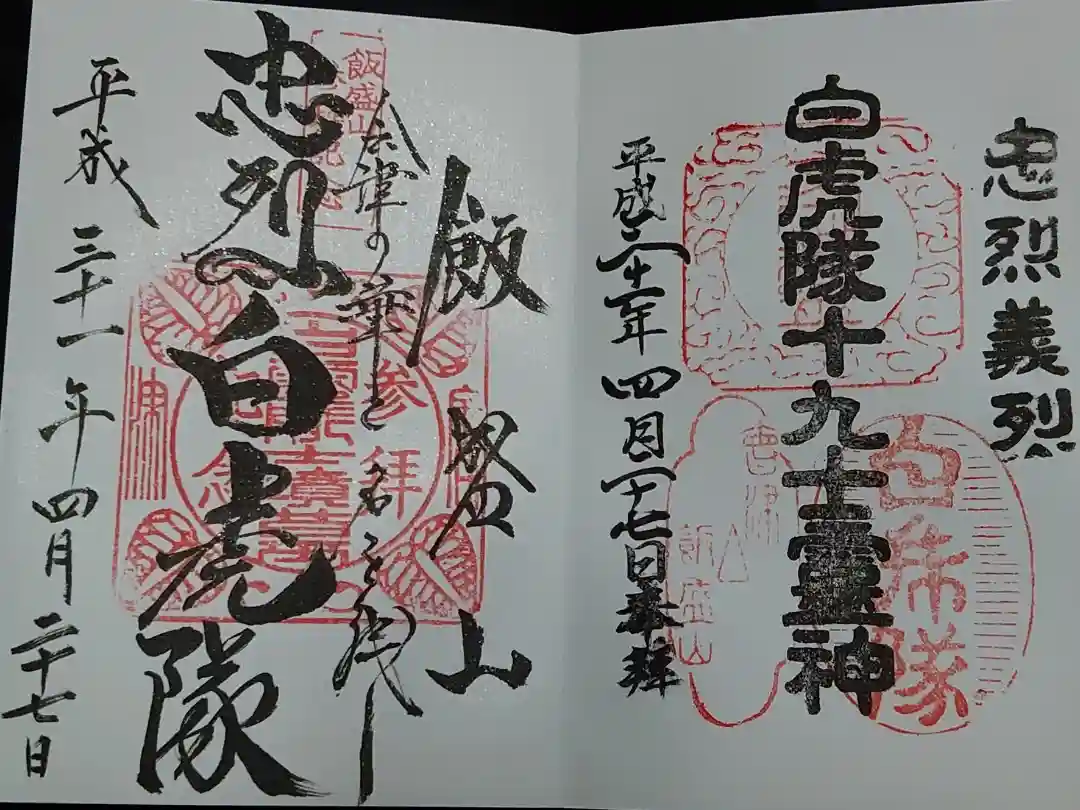 忠烈義烈
白虎隊十九士霊神
平成三十一年四月二十七日奉拝
白虎隊
会津
飯盛山
飯盛山
会津の華と名を残し
忠列の白虎隊
平成三十一年四月二十七日
飯盛山
参拝